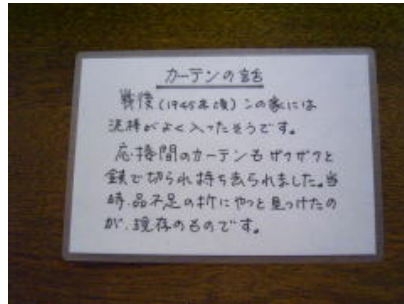 カーテンの話
戦後(1945年頃)この家には
泥棒がよく入ったそうです。
応接間のカーテンもザクザクと
鋏で切られ持ち去られました。当
時、品不足の折にやっと見つけたの
が、現存のものです。